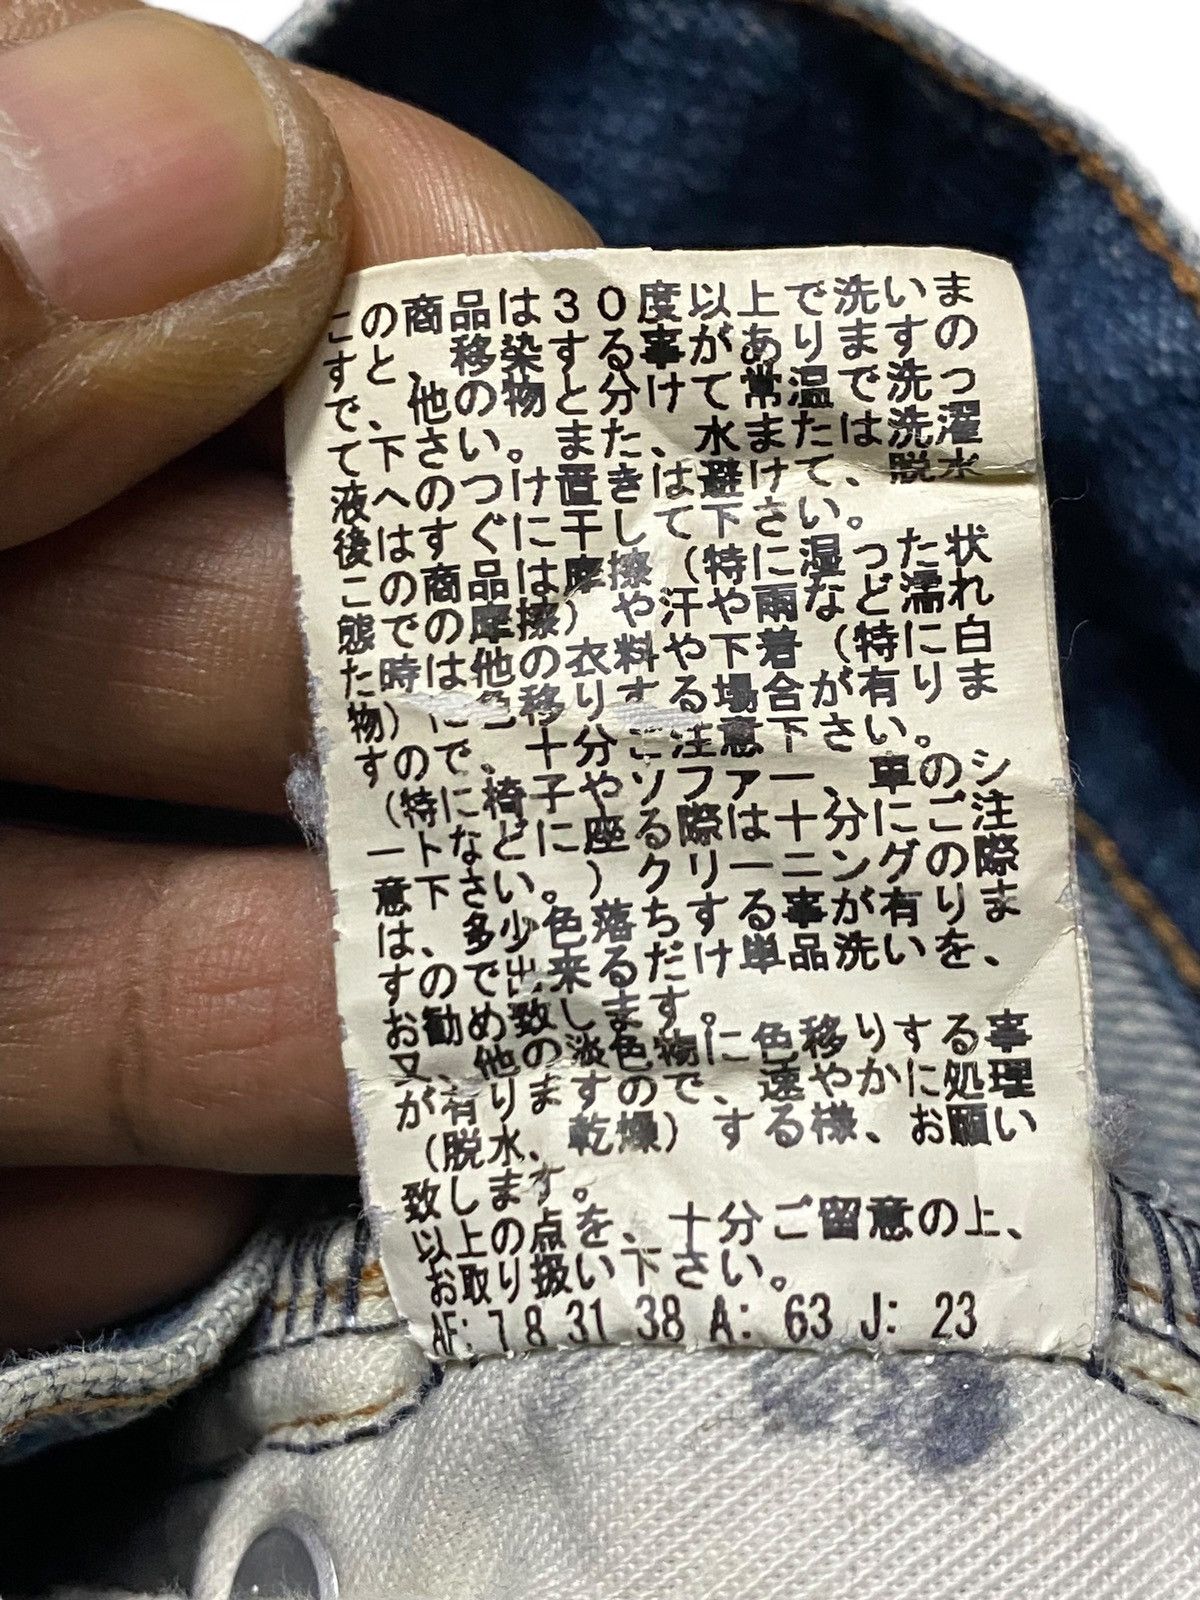 この商品は30度以上で洗いま
すと、移染する事がありますの
で、他の物と分けて常温で洗っ
て下さい。また、水または洗濯
液へのつけ置きは避けて、脱水
後はすぐに干して下さい。
この商品は摩擦(特に湿った状
態での摩擦)や汗や雨などで濡れ
た時は他の衣料や下着(特に白
物)に色移りする場合が有りま
すので、十分ご注意下さい。
(特に椅子やソファー、車のシ
ートなどに座る際は十分にご注
意下さい。)クリーニングの際
は、多少色落ちする事が有りま
すので出来るだけ単品洗いを、
お勧め致します。
又、他の淡色物に色移りする事
が有りますので、速やかに処理
(脱水、乾燥)する様、お願い
致します。
以上の点を、十分ご留意の上、
お取り扱い下さい。
AF: 78 31 38 A: 63 J: 23